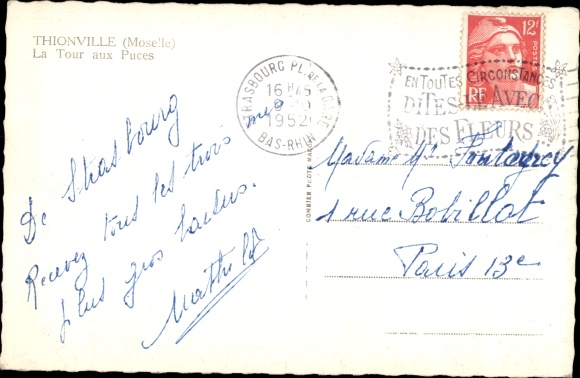 THIONVILLE (Moselle)
La Tour aux Puces
De Strasbourg
Recevez tous les trois
plus gros baisers.
STRASBOURG PL. DE LA GARE
16H15
1952
BAS-RHIN
12F
POSTES
RF
EN TOUTES CIRCONSTANCES
DITES-LE AVEC
DES FLEURS
COMBIER
Madame
1 rue Bobillot
Paris 13e